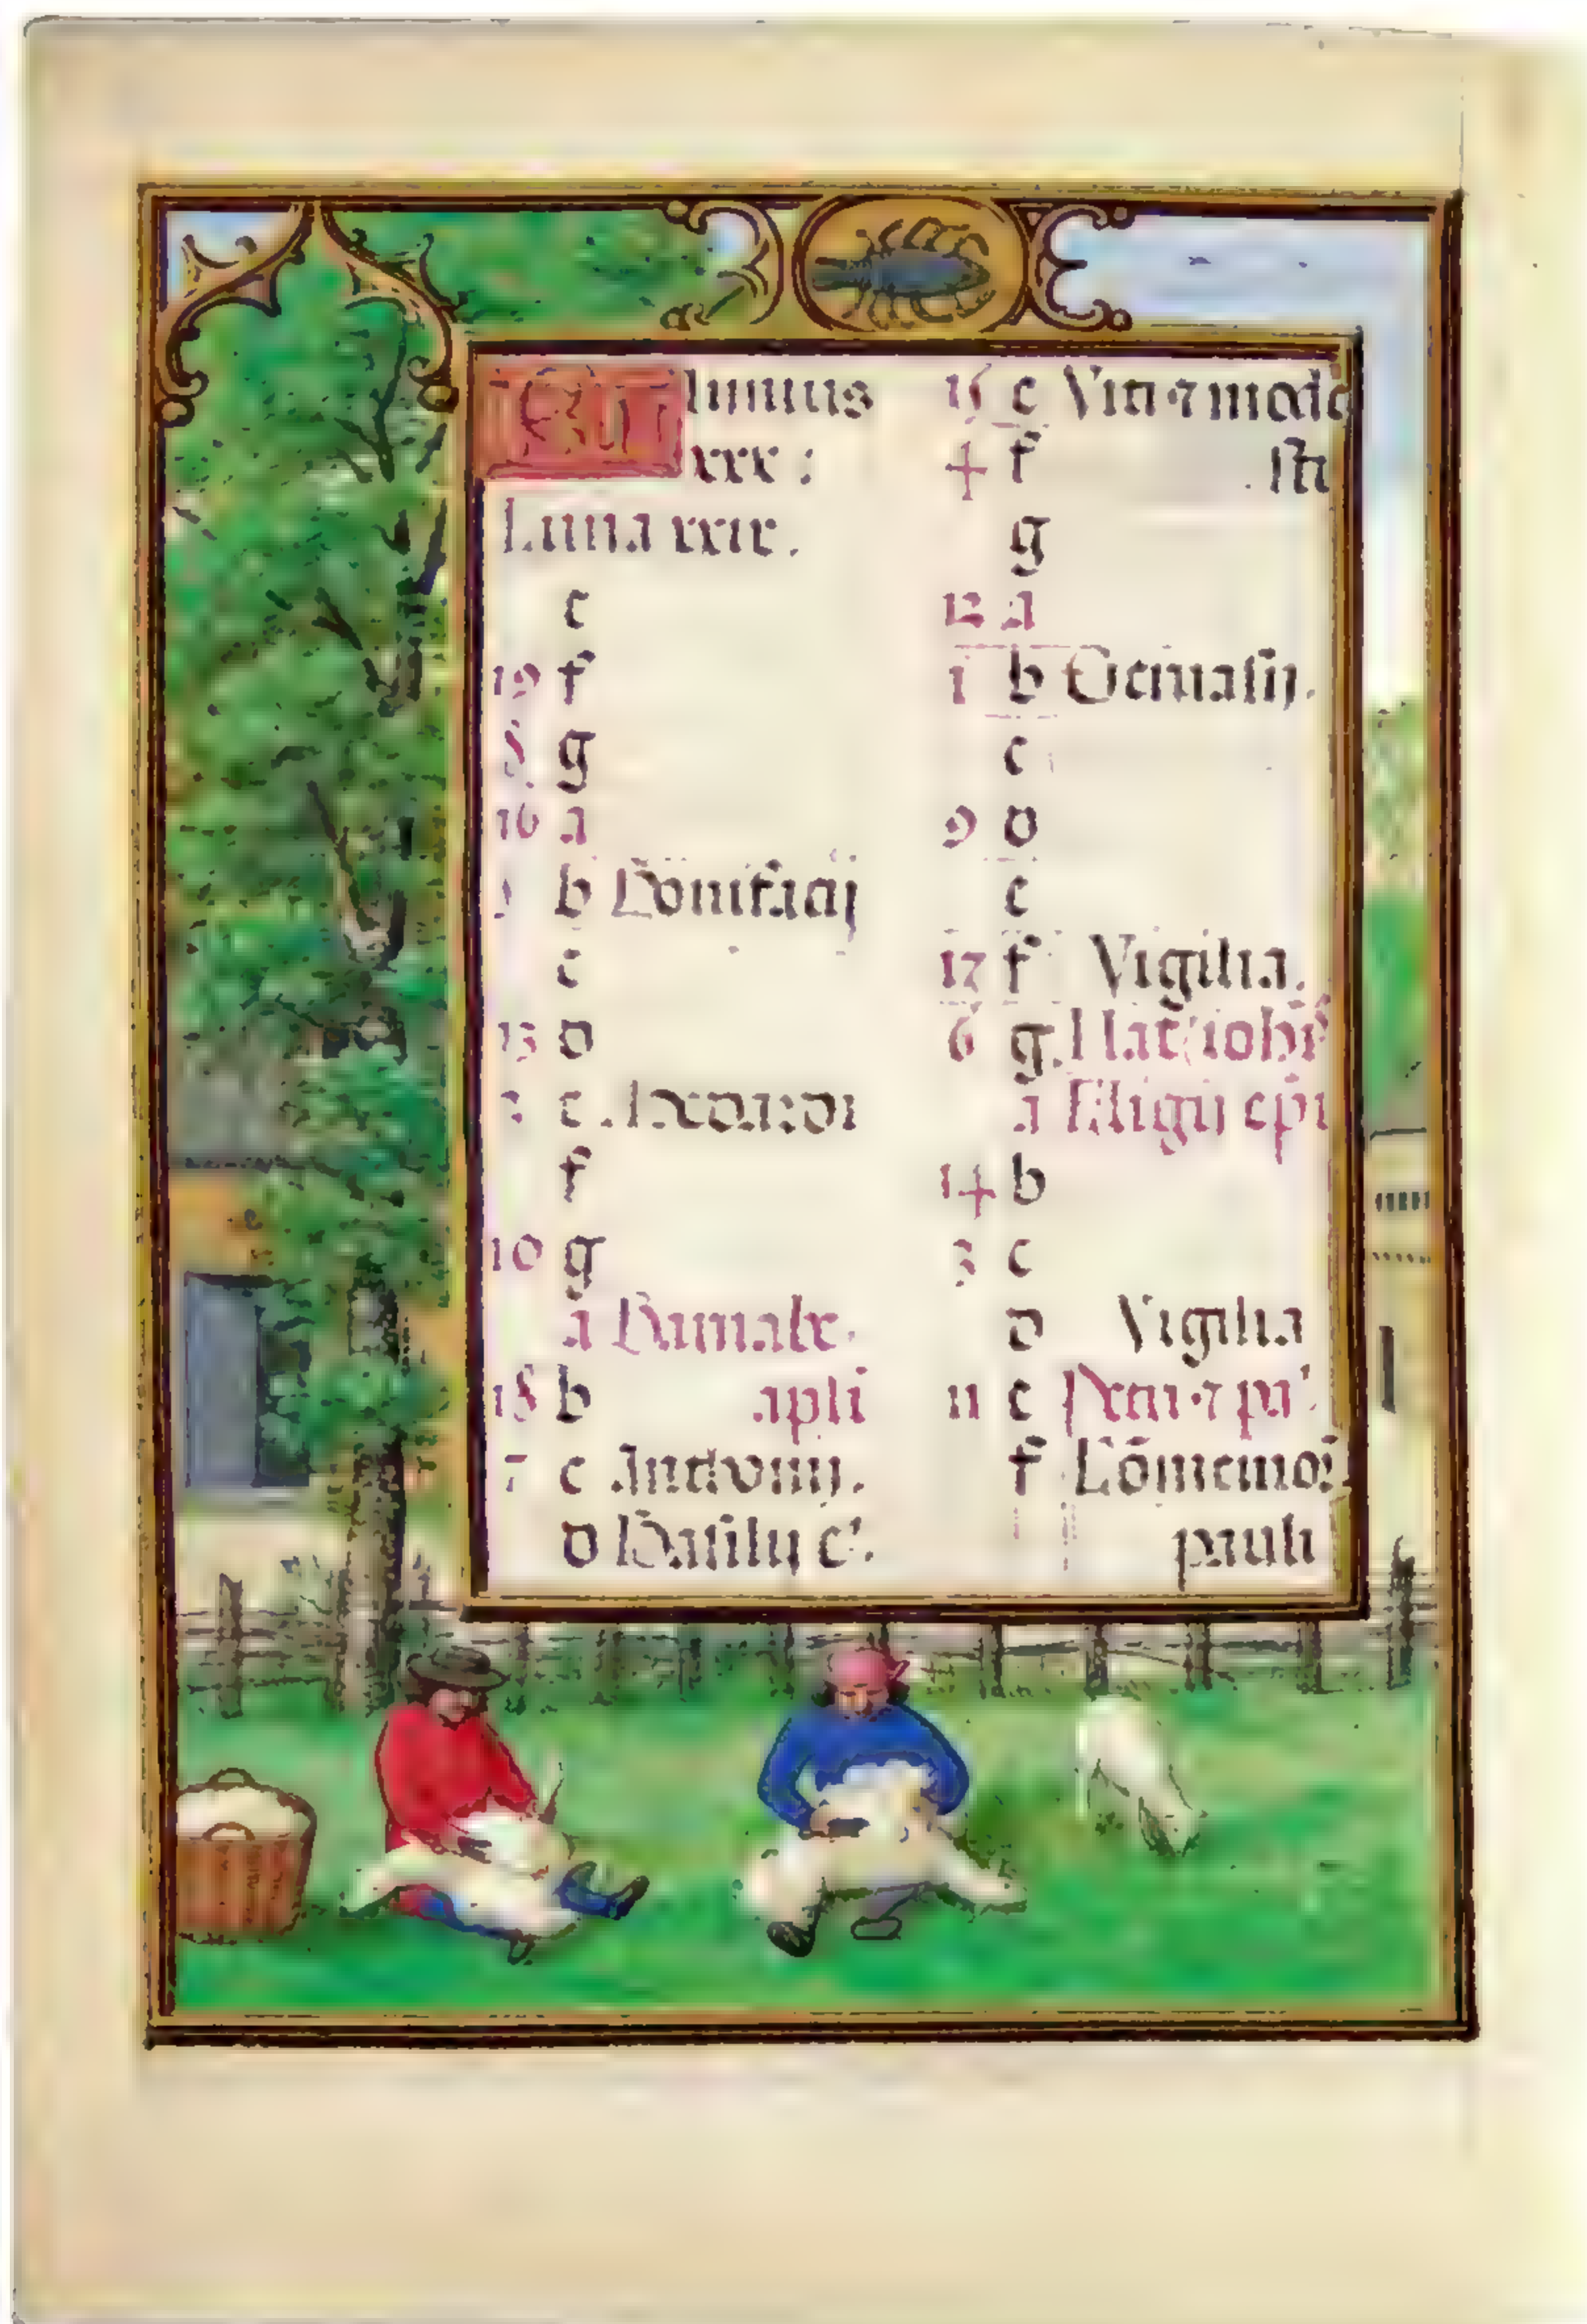 KL Iunius
xxx :
Luna xxix.
e
19 f
8 g
16 a
5 b Bonifacij
c
13 d
2 e Medardi
f
10 g
a Barnabe.
18 b apli
7 c Anthonij.
d Basilij e'.
15 e Viti ⁊ mode
4 f sti
g
12 a
1 b Geruasij.
c
9 d
e
17 f Vigilia.
6 g Nat iohis
a Eligij epi
14 b
3 c
d Vigilia
11 e Petri ⁊ pa'
f Cōmemor
pauli